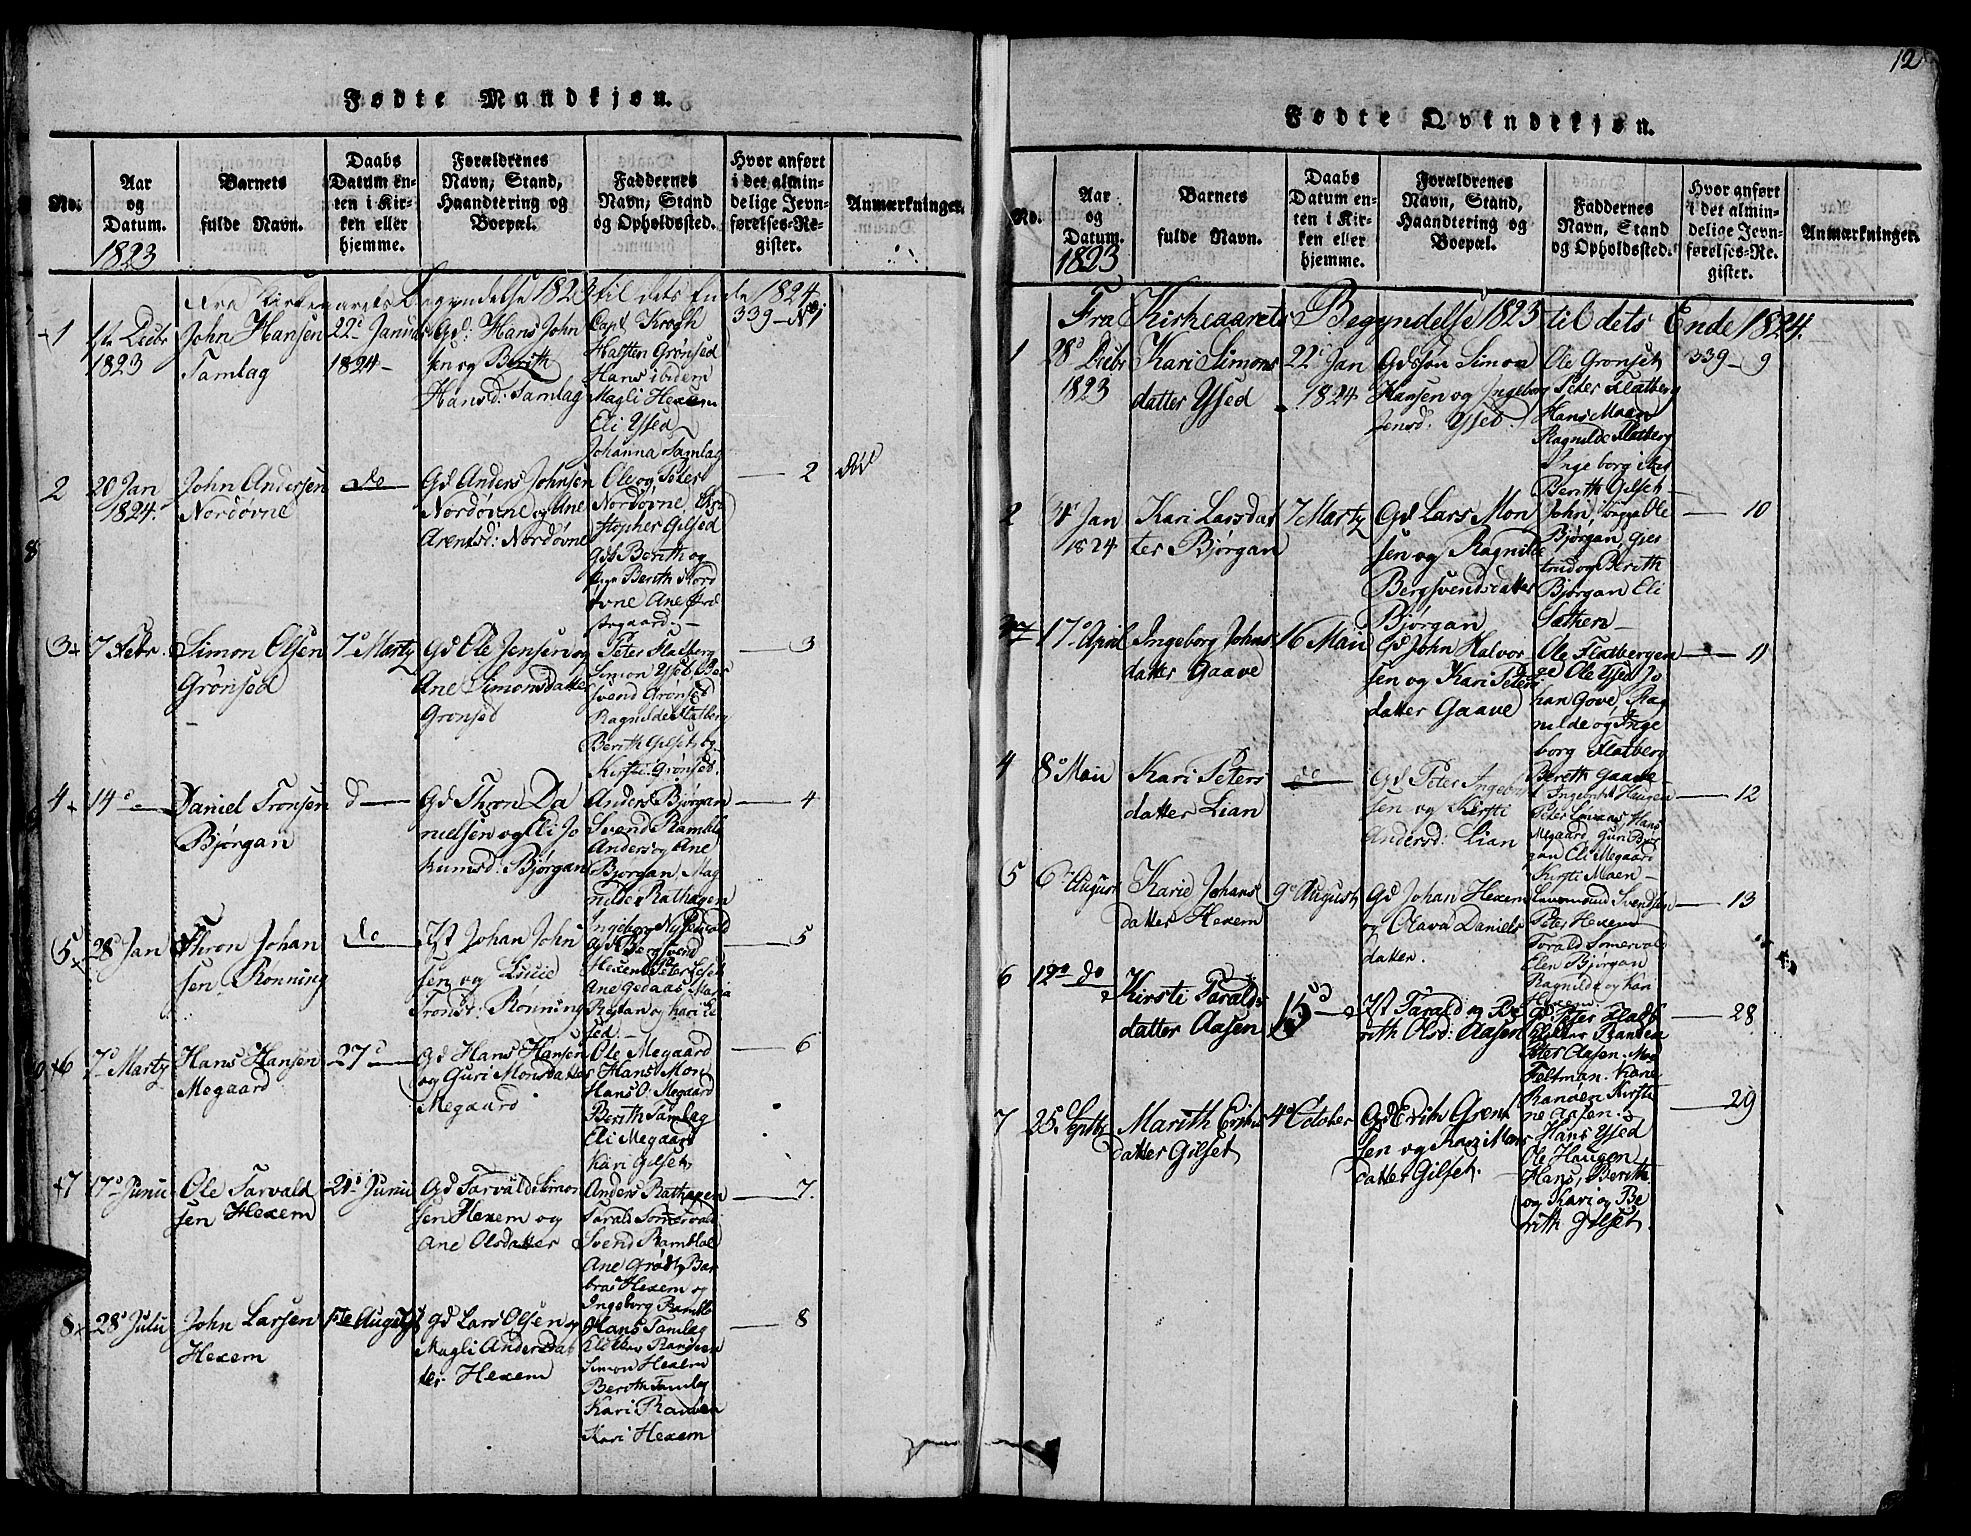 12
Fødte Mandkjøn.
No.
Aar
og
Datum.
1823
Barnets
fulde Navn.
Daabs
Datum en-
ten i Kir-
ken eller
hjemme.
Forældrenes
Navn, Stand,
Haandtering og
Boepæl.
Faddernes
Navn, Stand
og Opholdssted.
Hvor anført
i det almin-
delige Jevn-
førelses-Re-
gister.
Anmærkninger.
Fra Kirkeaarets Begyndelse 1823 til dets Ende 1824
1
1te Decbr
1823
John Hansen
Tamlag
22de Januar
1824
Gd: Hans John
sen og Berith
Hansd: Tamlag
Capt Krogh
Halsten Grønsed
Hans ibidem
Magli Hexem
Eli Ysed
Johanna Tamlag
339 - No 1
2
20 Jan
1824.
John Andersen
Nordøvne
do
Gd Anders Johnsen
Nordøvne og Ane
Arentsd: Nordøvne
Ole og Peter
Nordøvne,
stopher Gilsed
Gds Berith og
Berith Nord
øvne Ane
2
3
7 Febr.
Simon Olsen
Grønsed
7de Marty
Gd Ole Jensen og
Ane Simonsdatter
Grønsed
Peter Flatberg
Simon Ysed
svend Grønsed
Ragnilde Flatberg
Berith Gilset og
Kirsti Grønsed.
3
4
14de
Daniel Tronsen
Bjørgan
d
Gd Thron Da
nielsen og Eli Jo
kumsd: Bjørgan
Anders Bjørgan
Svend Ramblo
Anders og Ane
Bjørgan, Mag
nilde Rathagen
Ingeborg
4
5
28 Jan
Thron Johan
sen Rønning
do
Johan John
sen og Lucie
Trondsd: Rønning
Gd Bergsvend
Hexem Peter
Ane Maria
og kari
sed.
5
6
7de Marty
Hans Hansen
Megaard
27de
Gd Hans Hansen
og Guri Monsdatter
Megaard
Ole Megaard
Hans Mon
Hans O. Megaard
Berith Tamlag
Eli Megaard
Kari Gilset
6
7
17de Junii
Ole Tarvald
sen Hexem
Junii
Gd Tarvald Simon
sen Hexem og
Ane Olsdatter
Anders Rathagen
Tarald Somervold
Svend Ramblo
Ane Grødt, Bar
bras Hexem og
Ingeborg Ramblo
7.
8
28de Julii
John Larsen
Hexem
August
Gd Lars Olsen og
Magli Andersdat
ter Hexem
Hans Tamlag
Randeen
Simon Hexem
Berith Tamlag
Kari Randen
Kari Hexem
8
Fødte Qvindekjøn.
No.
Aar
og
Datum.
1823
Barnets
fulde Navn.
Daabs
Datum en-
ten i Kir-
ken eller
hjemme.
Forældrenes
Navn, Stand,
Haandtering og
Boepæl.
Faddernes
Navn, Stand
og Opholdssted.
Hvor anført
i det almin-
delige Jevn-
førelses-Re-
gister.
Anmærkninger.
Fra Kirkeaarets Begyndelse 1823 til dets Ende 1824.
1
28de Decbr
1823
Kari Simons
datter Ysed
22de Jan
1824
Simon
Hansen og Ingeborg
Jensd: Yset.
Ole Grønset
Peter Flatberg
Hans Moan
Ragnilde Flatberg
Ingeborg
Berith Gilset
339 - 9
2
Jan
1824
Kari Larsdat
ter Bjørgan
7 Marty
Gd Lars Mon
sen og Ragnilde
Bergsvendsdatter
Bjørgan
John, Ole
Bjørgan, Gjer
trud og Berith
Bjørgan Eli
Sæther
10
17de April
Ingeborg Johns
datter Gaave
16 Maii
Gd John Halvor
sen og Kari Peters
datter Gaave
Ole Flatberg
Ole Ysed Jo
han Gove, Rag
nilde og Inge
borg Flatberg
Bereth Gaave
11
4
8de Maii
Kari Peters
datter Lian
do
Gd Peter Ingebrigt
sen og Kirsti
Andersd: Lian
Ingebrigt Haugen
Peter Hans
Megaard Guri Bjør
gan Eli Megaard
Kirsti Moen
12
5
6te August
Karie Johans
datter Hexem
9de August
Gd Johan Hexem
og Olava Daniels
datter.
Svendsen
Peter Hexem
Torald Somervold
Elen Bjørgan
Ragnilde og kari
Hexem.
13
6
12de do
Kirsti Tarald
datter Aasen
15de
Tarald og Be
rith Olsd: Aasen
Peter
Randen
Peter Aasen.
Feltman. Kane
Randen Kirsti
ne Aasen.
28
7
25 Septbr
Marith Erichs
datter Gilset
4de October
Gd Erich Gren
sen og Kari Mons
datter Gilset.
Hans Ysed
Ole Haugen
Hans, Berith
og Kari og Be
rith Gilset.
29